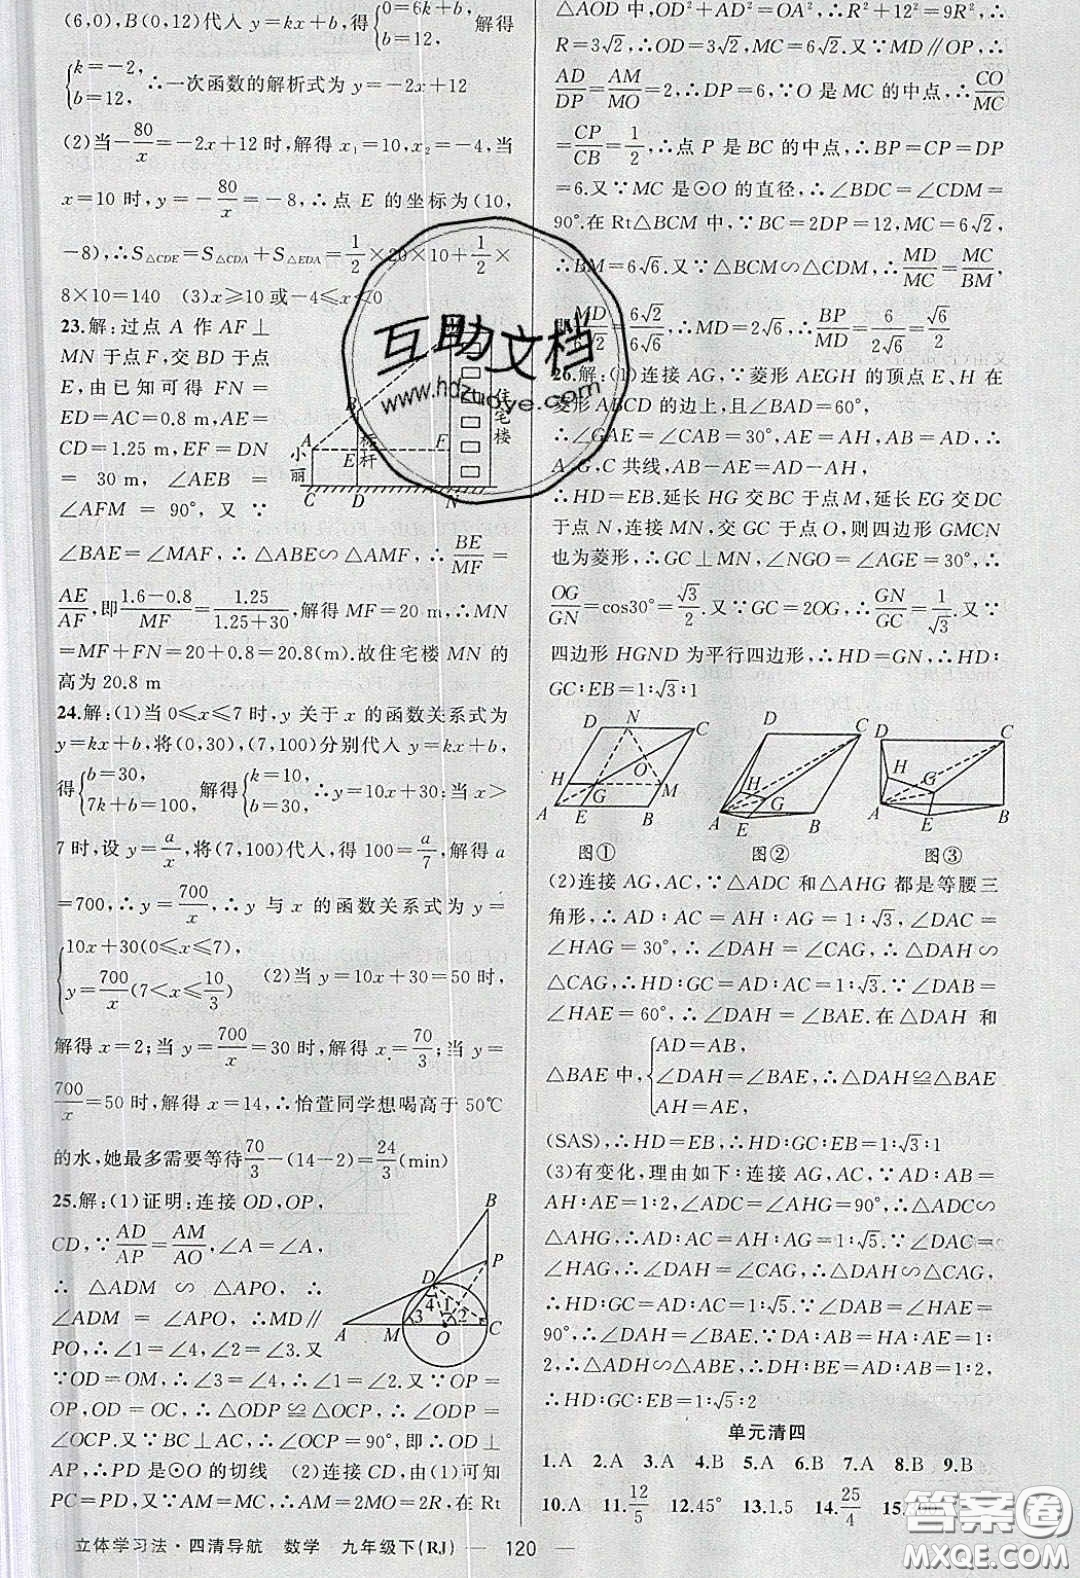 (6,0),B(0,12)代入 y=kx+b,得{0=6k+b, b=12, 解得
{k=-2, b=12, ∴一次函数的解析式为 y=-2x+12
(2)当-80/x=-2x+12时,解得 x₁=10,x₂=-4,当
x=10时,y=-80/x=-8,∴点 E 的坐标为(10,
-8),∴S△CDE=S△CDA+S△EDA=1/2×20×10+1/2×
8×10=140 (3)x≥10或-4≤x<0
23.解:过点 A 作 AF⊥
MN于点F,交 BD于点
E,由已知可得 FN=
ED=AC=0.8 m,AE=
CD=1.25 m,EF=DN
= 30 m,∠AEB =
∠AFM = 90°,又 ∵
∠BAE=∠MAF,∴△ABE∽△AMF,∴BE/MF=
AE/AF,即(1.6-0.8)/MF=1.25/(1.25+30),解得MF=20 m,∴MN
=MF+FN=20+0.8=20.8(m).故住宅楼 MN 的
高为20.8 m
A B E F C D N M
小丽
标杆
住宅楼
24.解:(1)当0≤x≤7时,y关于x的函数关系式为
y=kx+b,将(0,30),(7,100)分别代入y=kx+b,
得{b=30, 7k+b=100, 解得{k=10, b=30, ∴y=10x+30;当x>
7时,设y=a/x,将(7,100)代入,得100=a/7,解得a
=700,∴y=700/x,∴y与x的函数关系式为y=
{10x+30(0≤x≤7), y=700/x(7<x≤10/3) (2)当y=10x+30=50时,
解得x=2;当y=700/x=30时,解得x=70/3;当y=
700/x=50时,解得x=14,∴怡萱同学想喝高于50℃
的水,她最多需要等待70/3-(14-2)=24/3(min)
25.解:(1)证明:连接OD,OP,
CD,∵AD/AP=AM/AO,∠A=∠A,
∴ △ADM ∽ △APO,∴
∠ADM=∠APO,∴MD∥
PO,∴∠1=∠4,∠2=∠3.又
∵OD=OM,∴∠3=∠4,∴∠1=∠2.又∵OP=
OP,OD=OC,∴△ODP≌△OCP,∴∠ODP=
∠OCP.又∵BC⊥AC,∴∠OCP=90°,即OD⊥
AP,∴PD是⊙O的切线 (2)连接CD,由(1)可知
PC=PD,又∵AM=MC,∴AM=2MO=2R,在Rt
B P D A M O C 4 1 3 2
△AOD中,OD²+AD²=OA²,∴R²+12²=9R²,∴
R=3√2,∴OD=3√2,MC=6√2.又∵MD∥OP,∴
AD/DP=AM/MO=2,∴DP=6,∵O是MC的中点,∴CO/MC
=CP/CB=1/2,∴点P是BC的中点,∴BP=CP=DP
=6.又∵MC是⊙O的直径,∴∠BDC=∠CDM=
90°.在Rt△BCM中,∵BC=2DP=12,MC=6√2,
∴BM=6√6.又∵△BCM∽△CDM,∴MD/MC=MC/BM,
即MD/6√2=6√2/6√6,∴MD=2√6,∴BP/MD=6/2√6=√6/2
26.解:(1)连接AG,∵菱形AEGH的顶点E、H在
菱形ABCD的边上,且∠BAD=60°,
∴∠GAE=∠CAB=30°,AE=AH,AB=AD,∴
A,G,C共线,AB-AE=AD-AH,
∴HD=EB.延长HG交BC于点M,延长EG交DC
于点N,连接MN,交GC于点O,则四边形GMCN
也为菱形,∴GC⊥MN,∠NGO=∠AGE=30°,∴
OG/GN=cos30°=√3/2.又∵GC=2OG,∴GN/GC=1/√3.又∵
四边形HGND为平行四边形,∴HD=GN,∴HD:
GC:EB=1:√3:1
D N C H O G M A E B
D C H G A E B
D C H G A E B
图① 图② 图③
(2)连接AG,AC,∵△ADC和△AHG都是等腰三
角形,∴AD:AC=AH:AG=1:√3,∠DAC=
∠HAG=30°,∴∠DAH=∠CAG,∴△DAH∽
△CAG,∴HD:GC=AD:AC=1:√3.∵∠DAB=
∠HAE=60°,∴∠DAH=∠BAE.在△DAH和
△BAE中,{AD=AB, ∠DAH=∠BAE, AH=AE, ∴△DAH≌△BAE
(SAS),∴HD=EB,∴HD:GC:EB=1:√3:1
(3)有变化,理由如下:连接AG,AC,∵AD:AB=
AH:AE=1:2,∠ADC=∠AHG=90°,∴△ADC∽
△AHG,∴AD:AC=AH:AG=1:√5.∵∠DAC=
∠HAG,∴∠DAH=∠CAG,∴△DAH∽△CAG,
∴HD:GC=AD:AC=1:√5.∵∠DAB=∠HAE=
90°,∴∠DAH=∠BAE.∵AD:AB=AH:AE=1:
2,∴△ADH∽△ABE,∴DH:BE=AD:AB=1:2,
∴HD:GC:EB=1:√5:2
单元清四
1.A 2.A 3.A 4.B 5.A 6.B 7.A 8.B 9.B
10.A 11.12/5 12.45° 13.1.5 14.25/4 15.
立体学习法·四清导航 数学 九年级下(RJ) — 120 —
互助文档
www.hdzuoye.com
答案圈